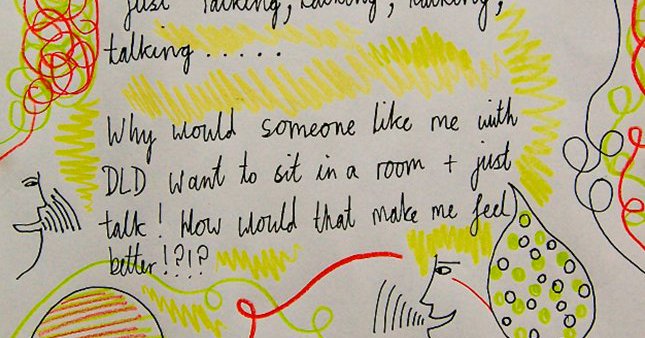 just talking, talking, talking,
talking . . . . .
Why would someone like me with
DLD want to sit in a room + just
talk! How would that make me feel
better!?!?